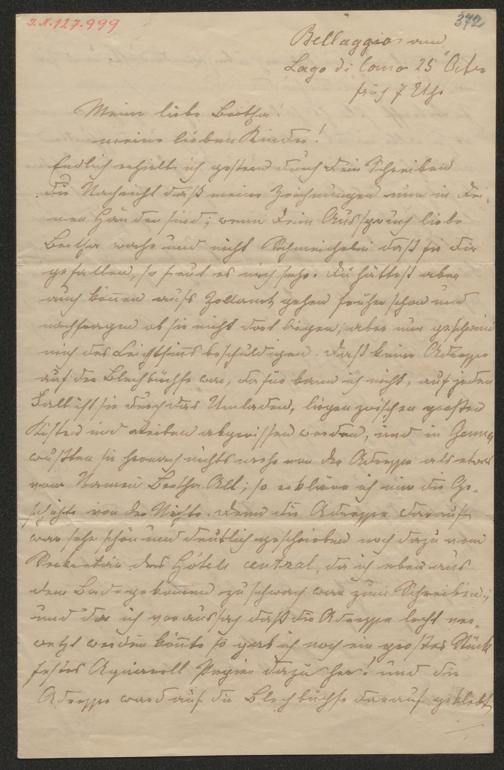 I.N.127.999
372
Bellaggio am
Lago di Como 25 Octo
früh 7 Uhr
Meine liebe Bertha!
meine lieben Kinder!
Endlich erhielt ich gestern durch Dein Schreiben
die Nachricht daß meine Zeichnungen nun in Dei-
nen Händen sind; wenn Dein Ausspruch liebe
Bertha wahr und nicht Schmeichelei daß sie Dir
gefallen, so freut es mich sehr. Du hättest aber
auch können aufs Zollamt gehen früher schon und
nachfragen ob sie nicht dort liegen, aber nur
mich des Leichtsinns beschuldigen. Daß keine Adresse
auf der Blechbüchse war, dafür kann ich nicht, auf jeden
Fall ist sie durch das Umladen, liegen zwischen großen
Kisten und Reiben abgerissen worden, und in Genua
wußten sie hernach nichts mehr von der Adresse als etwas
vom Namen Bertha Alt; so erkläre ich mir die Ge-
schichte von der Kiste. Denn die Adresse darauf
war sehr schön und deutlich geschrieben noch dazu vom
Secretär des Hôtels central, da ich eben aus
dem Bade gekommen zu schwach war zum Schreiben;
und da ich voraussah daß die Adresse leicht ver-
wetzt werden könnte so gab ich noch ein großes Stück
festes Aquarell Papier dazu her! und die
Adresse ward auf die Blechbüchse darauf geklebt